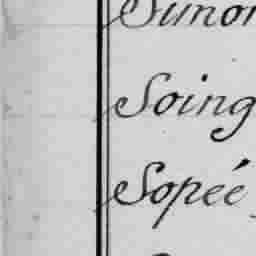 Simon
Soing
Sopée